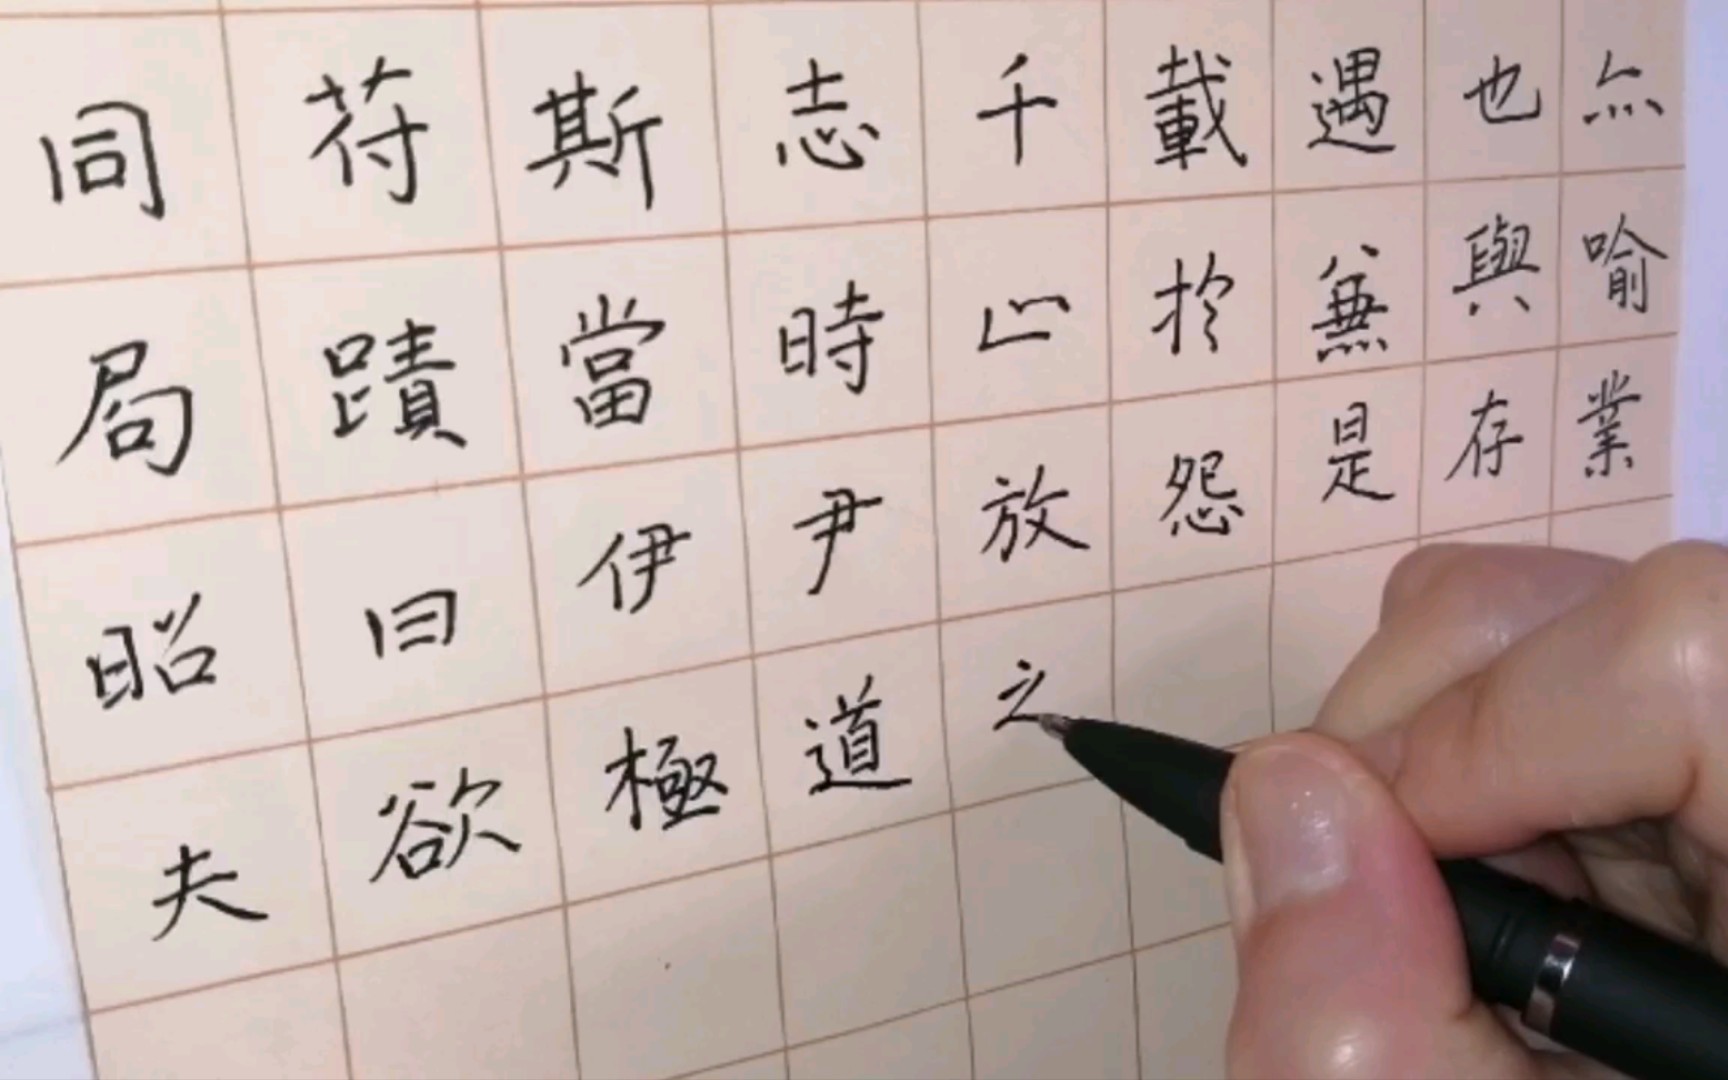 同苻斯志千載遇也亦
局蹟當時止扵兼與喻
昭曰伊尹放怨是存業
夫欲極道之